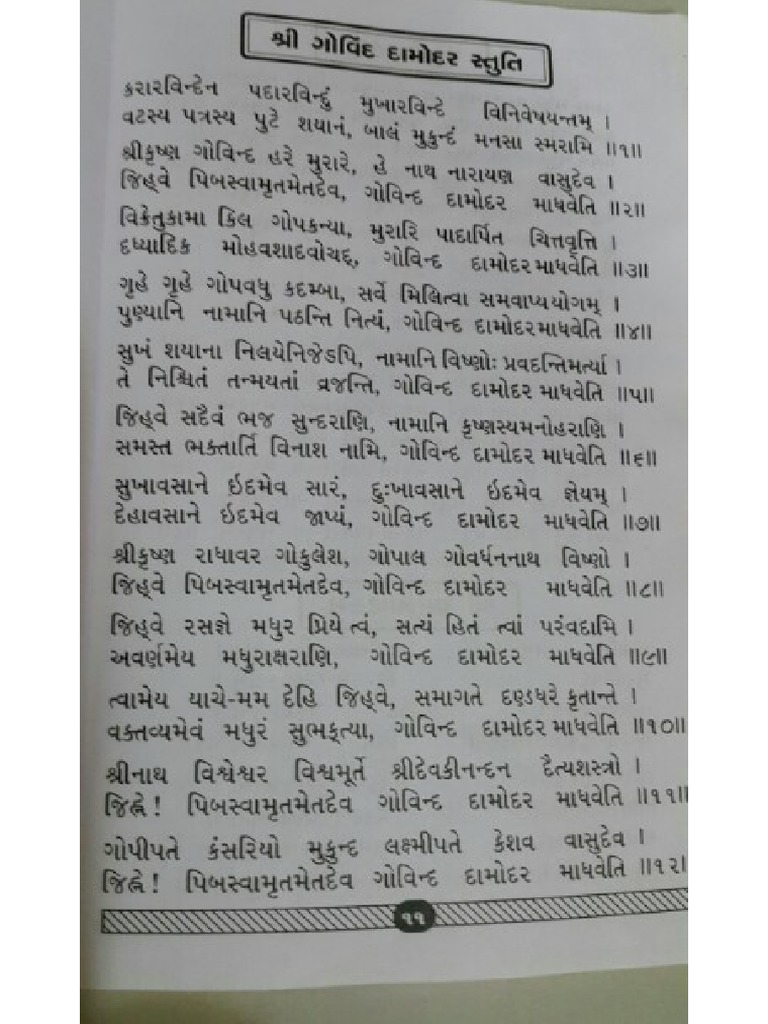 શ્રી ગોવિંદ દામોદર સ્તુતિ
કરારવિન્દેન પદારવિન્દું મુખારવિન્દે વિનિવેષયન્તમ્ ।
વટસ્ય પત્રસ્ય પુટે શયાનં, બાલં મુકુન્દં મનસા સ્મરામિ ॥૧॥
શ્રીકૃષ્ણ ગોવિન્દ હરે મુરારે, હે નાથ નારાયણ વાસુદેવ ।
જિહ્વે પિબસ્વામૃતમેતદેવ, ગોવિન્દ દામોદર માધવેતિ ॥૨॥
વિક્રેતુકામા કિલ ગોપકન્યા, મુરારિ પાદાર્પિત ચિત્તવૃત્તિ ।
દધ્યાદિક મોહવશાદવોચદ્, ગોવિન્દ દામોદર માધવેતિ ॥૩॥
ગૃહે ગૃહે ગોપવધુ કદમ્બા, સર્વે મિલિત્વા સમવાપ્યયોગમ્ ।
પુણ્યાનિ નામાનિ પઠન્તિ નિત્યં, ગોવિન્દ દામોદર માધવેતિ ॥૪॥
સુખં શયાના નિલયેનિજેડપિ, નામાનિ વિષ્ણોઃ પ્રવદન્તિમર્ત્યા ।
તે નિશ્ચિતં તન્મયતાં વ્રજન્તિ, ગોવિન્દ દામોદર માધવેતિ ॥૫॥
જિહ્વે સદૈવં ભજ સુન્દરાણિ, નામાનિ કૃષ્ણસ્યમનોહરાણિ ।
સમસ્ત ભક્તાર્તિ વિનાશ નામિ, ગોવિન્દ દામોદર માધવેતિ ॥૬॥
સુખાવસાને ઇદમેવ સારં, દુઃખાવસાને ઇદમેવ જ્ઞેયમ્ ।
દેહાવસાને ઇદમેવ જાપ્યં, ગોવિન્દ દામોદર માધવેતિ ॥૭॥
શ્રીકૃષ્ણ રાધાવર ગોકુલેશ, ગોપાલ ગોવર્ધનનાથ વિષ્ણો ।
જિહ્વે પિબસ્વામૃતમેતદેવ, ગોવિન્દ દામોદર માધવેતિ ॥૮॥
જિહ્વે રસજ્ઞે મધુર પ્રિયે ત્વં, સત્યં હિતં ત્વાં પરંવદામિ ।
અવર્ણમેય મધુરાક્ષરાણિ, ગોવિન્દ દામોદર માધવેતિ ॥૯॥
ત્વામેય યાચે-મમ દેહિ જિહ્વે, સમાગતે દણ્ડધરે કૃતાન્તે ।
વક્તવ્યમેવં મધુરં સુભક્ત્યા, ગોવિન્દ દામોદર માધવેતિ ॥૧૦॥
શ્રીનાથ વિશ્વેશ્વર વિશ્વમૂર્તે શ્રીદેવકીનન્દન દૈત્યશસ્ત્રો ।
જિહ્ને ! પિબસ્વામૃતમેતદેવ ગોવિન્દ દામોદર માધવેતિ ॥૧૧॥
ગોપીપતે કંસરિયો મુકુન્દ લક્ષ્મીપતે કેશવ વાસુદેવ ।
જિહ્ને ! પિબસ્વામૃતમેતદેવ ગોવિન્દ દામોદર માધવેતિ ॥૧૨॥
૧૧